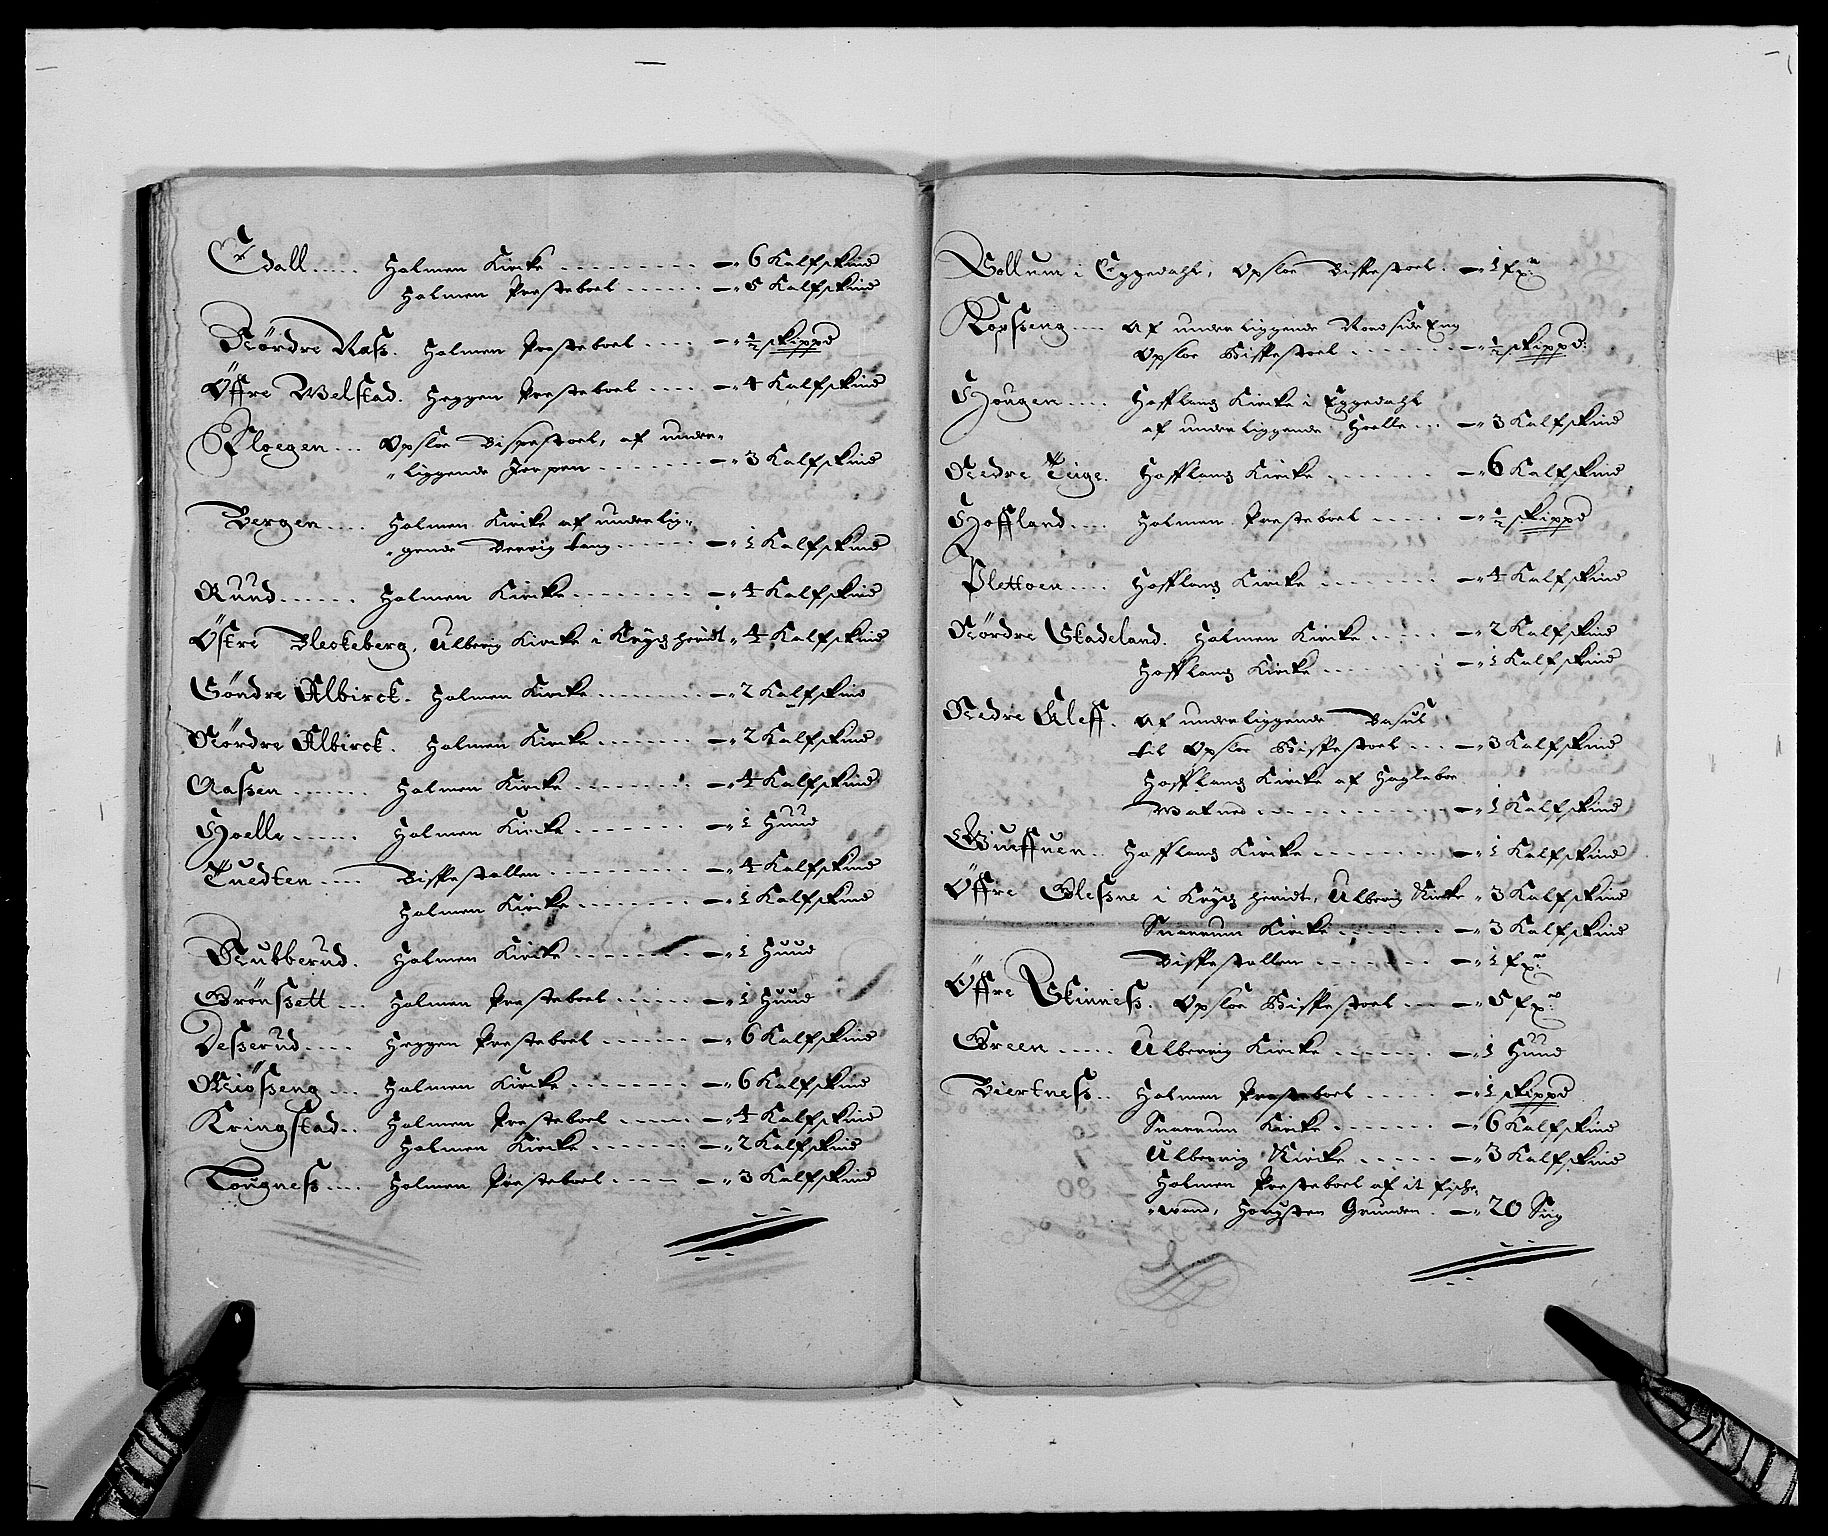 Edall ..... Holmen Kircke ......... — 6 Kalfskind
Holmen Presteboel ...... — 5 Kalfskind
Nördre Naß. Holmen Presteboel ..... — ½ skippd
Öffre Welstad. Heggen Presteboel ..... — 4 Kalfskind
Ploegen ... Opsloe Bispestoel, af under=
=liggende ....... — 3 Kalfskind
Bergen .... Holmen Kircke af underlig=
=gende ...... — 1 Kalfskind
Ruud ...... Holmen Kircke ........ — 4 Kalfskind
Östre Bleckeberg, Ulberig Kircke i Krydsherridt 4 Kalfskind
Söndre Albirck. Holmen Kircke ....... — 2 Kalfskind
Nördre Albirck. Holmen Kircke ....... — 2 Kalfskind
Aaßen ....... Holmen Kircke ........ — 4 Kalfskind
Hoelle ...... Holmen Kircke ....... — 1 Huud
Tuedten .... Bispestollen ......... — 4 Kalfskind
Holmen Kircke ....... — 1 Kalfskind
Rubberud. Holmen Kircke ........ — 1 Huud
Grönßett ... Holmen Presteboel ..... — 1 Huud
Deßerud .... Heggen Presteboel ...... — 6 Kalfskind
Miößeng ... Holmen Kircke ........ — 6 Kalfskind
Kringstad .. Holmen Presteboel ..... — 4 Kalfskind
Holmen Kircke ....... — 2 Kalfskind
Tougneß .... Holmen Presteboel ..... — 3 Kalfskind
Wollum i Eggedahl, Opsloe Bispestoel. — 1 fx:
Kopßeng .... Af underliggende Eng
Opsloe Bispestoel ....... — ½ skippd:
Hougen .... Hofflands Kircke i Eggedahl
af underliggende Hoelle ... — 3 Kalfskind
Nedre Teige. Hofflands Kircke ........ — 6 Kalfskind
Hoffland .... Holmen Presteboel ..... — ½ skippd
Plettoen .... Hofflands Kircke ........ — 4 Kalfskind
Nördre Skadeland. Holmen Kircke ..... — 2 Kalfskind
Hofflands Kircke ........ — 1 Kalfskind
Nedre Kleff. Af underliggende
til Opsloe Bispestoel ... — 3 Kalfskind
Hofflands Kircke af Hagleboe
Watned ............. — 1 Kalfskind
Guffuen .. Hofflands Kircke ........ — 1 Kalfskind
Öffre Gleßne i Krydsherridt, Ulberig Kircke 3 Kalfskind
Snarrum Kircke ....... — 3 Kalfskind
Bispestollen ........ — 1 fx:
Öffre Skinneß. Opsloe Bispestoel ... — 5 fx:
Green ..... Ulberig Kircke ....... — 1 Huud
Biertneß .. Holmen Presteboel ..... — 1 skippd
Snarrum Kircke ...... — 6 Kalfskind
Ulberig Kircke ..... — 3 Kalfskind
Holmen Presteboel af it fische=
=wand, Grunden. — 20